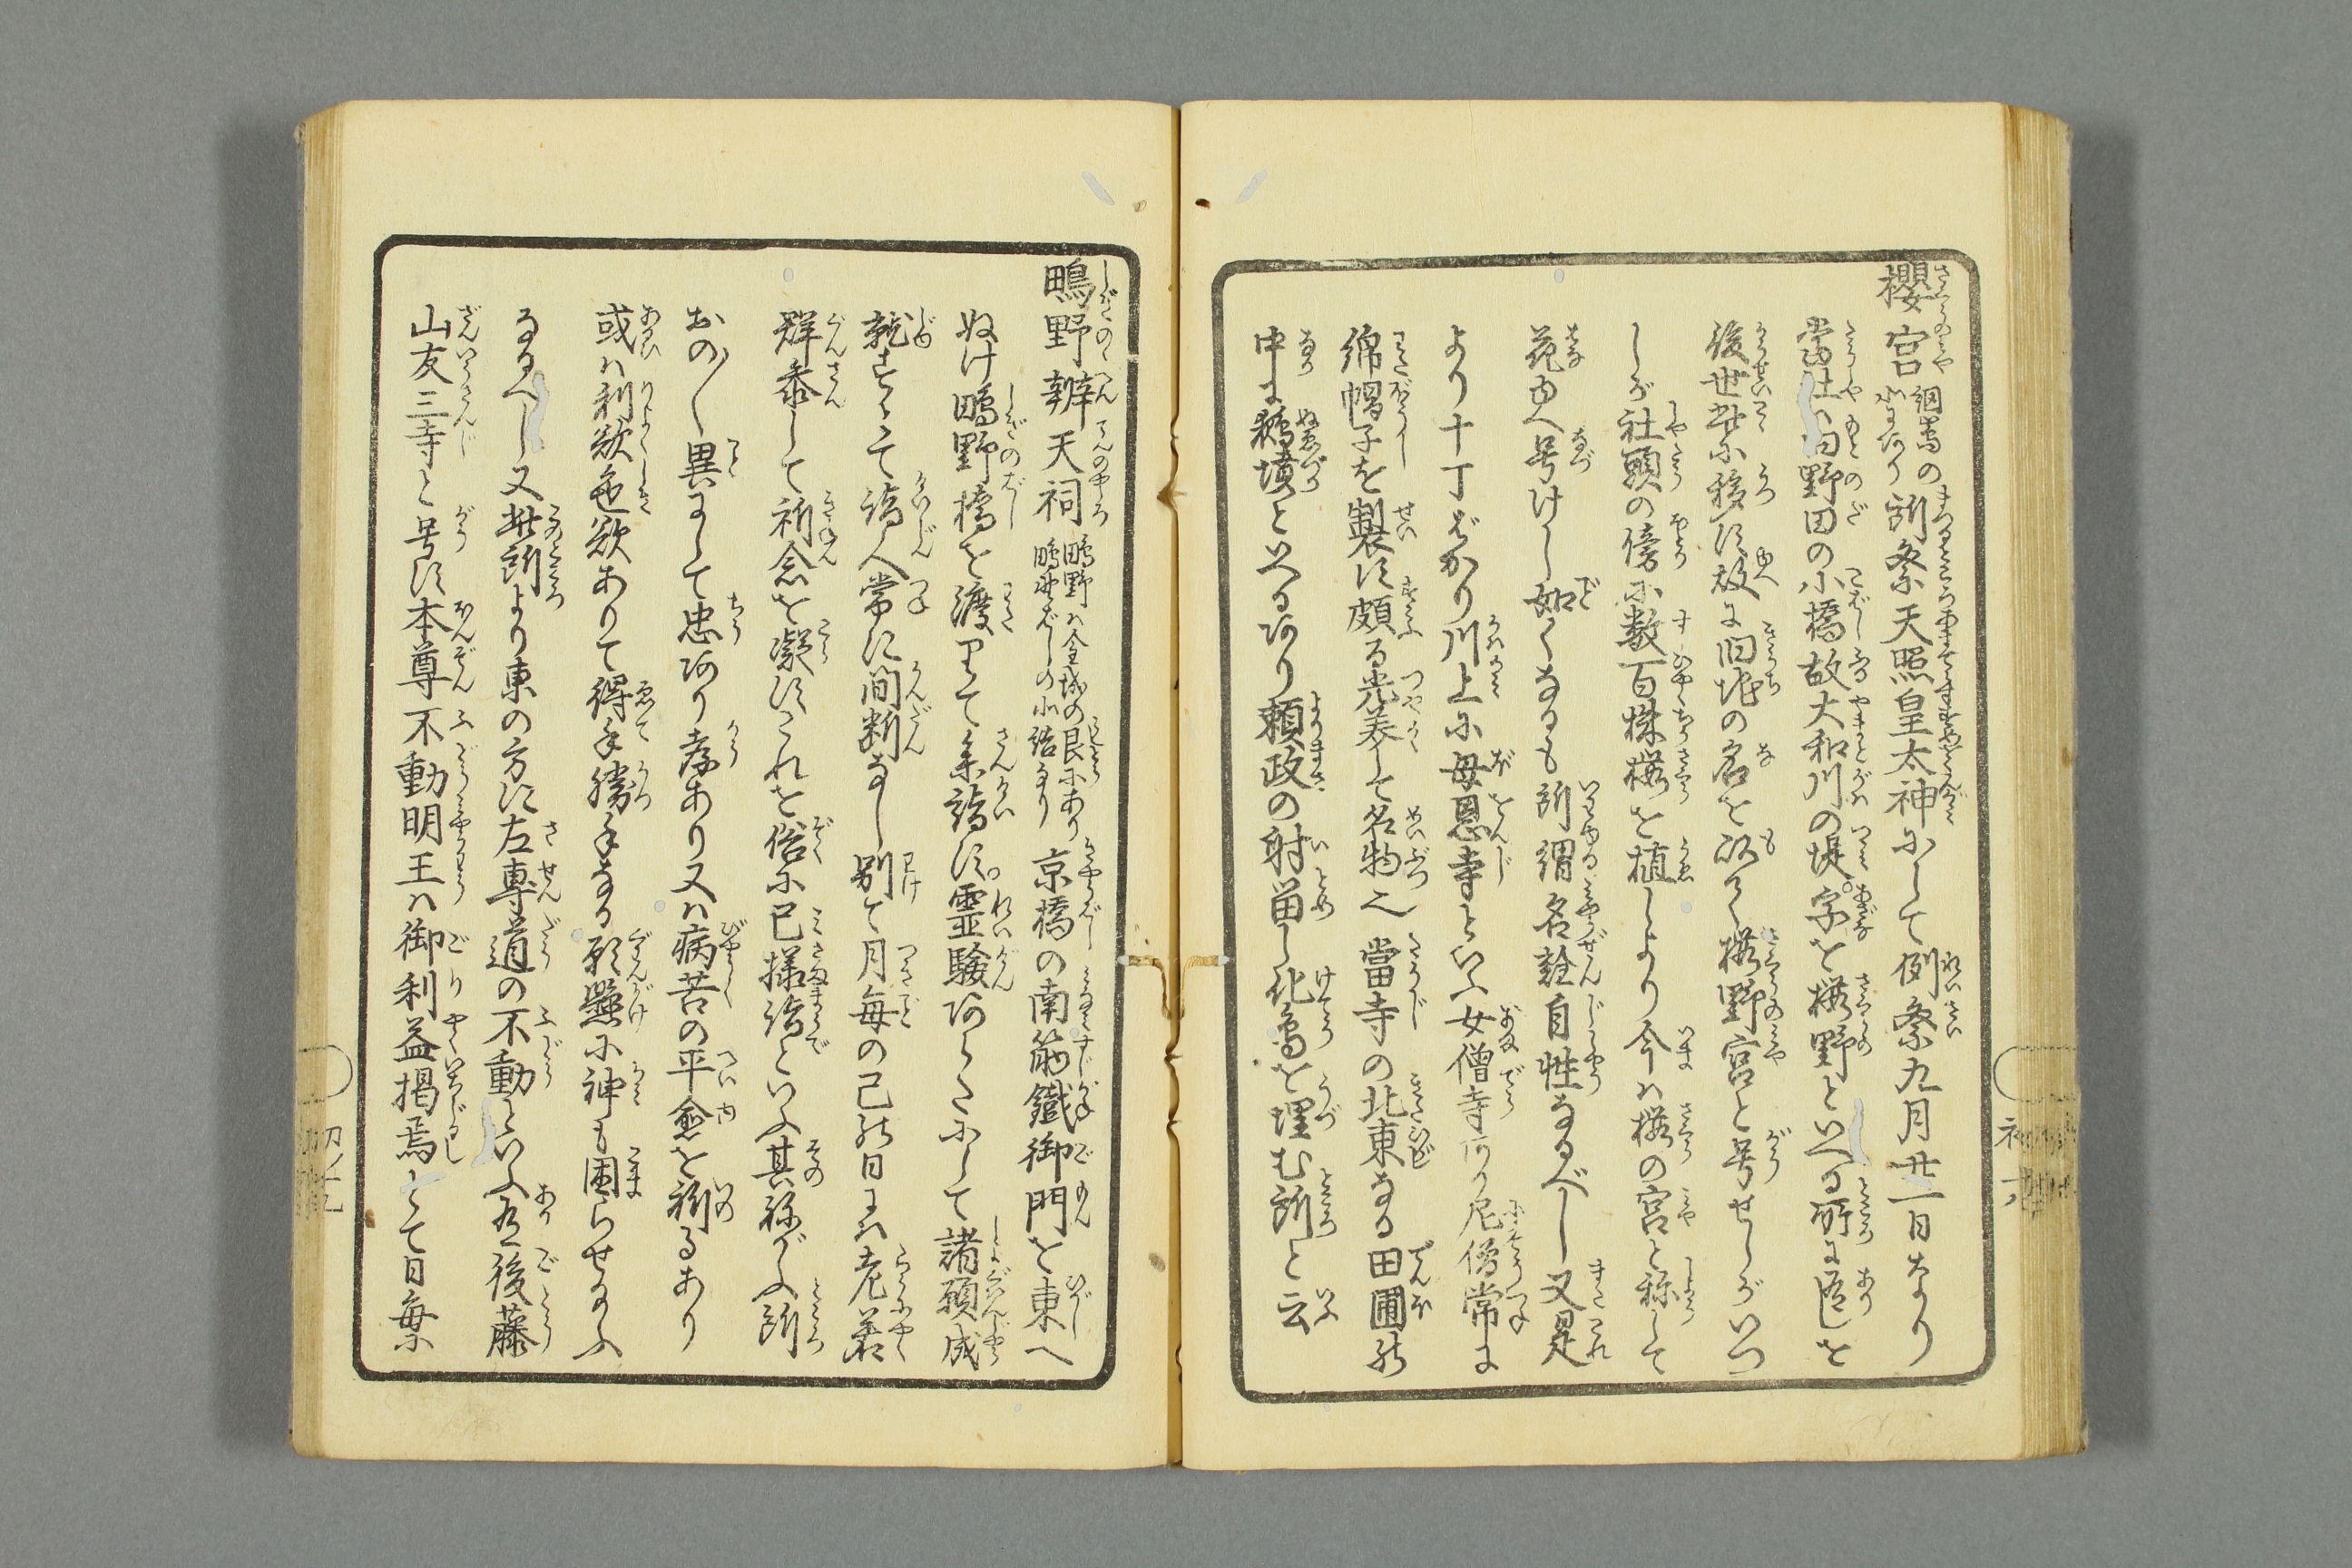 櫻宮 網嶌の北にあり 所祭天照皇太神にして例祭九月廿一日なり
当社ハ旧野田の小橋故大和川の堤字を桜野といへる所に遷しを
後世此に移す故に旧地の名を以て桜野宮と号せしがいつ
しか社頭の傍に数百株桜を植しより今ハ桜の宮と称して
花ゆへ号けし如くなるも所謂名詮自性なるべし又是
より十丁ばかり川上に母恩寺といふ女僧寺あり尼僧常に
綿帽子を製す頗る光美して名物也當寺の北東なる田圃の
中に鵺墳といへるあり頼政の射留し化鳥を埋む所と云
鴫野辨天祠 鴫野ハ金城の艮にあり鴫野ばしの北詰なり 京橋の南筋鐵御門を東へ
ぬけ鴫野橋を渡りて参詣す霊験あらたにして諸願成
就すとて詣人常に間断なし別て月毎の己の日にハ老若
群参して祈念を凝すこれを俗に巳様詣といふ其称ぶ所
おの〳〵異にして忠あり孝あり又ハ病苦の平愈を祈るあり
或ハ利欲色欲ありて得手勝手なる願懸に神も困らせ給ふ
なるべし又此所より東の方に左專道の不動といふ有後藤
山友三寺と号す本尊不動明王ハ御利益掲焉とて日毎